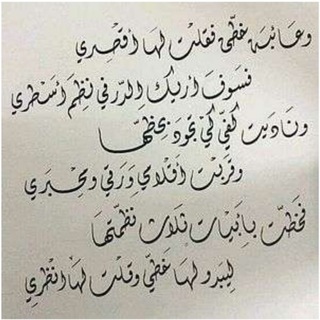 وعائبة خطّي فقلت لها أقصري
فسوف أريك الدّرّ في نظم أسطري
وناديت كفّي كي تجود بخطّها
وقرّبت أقلامي ورقي ومحبري
فخطّت بأبيات ثلاث نظمتها
ليبدو لها خطّي وقلت لها انظري